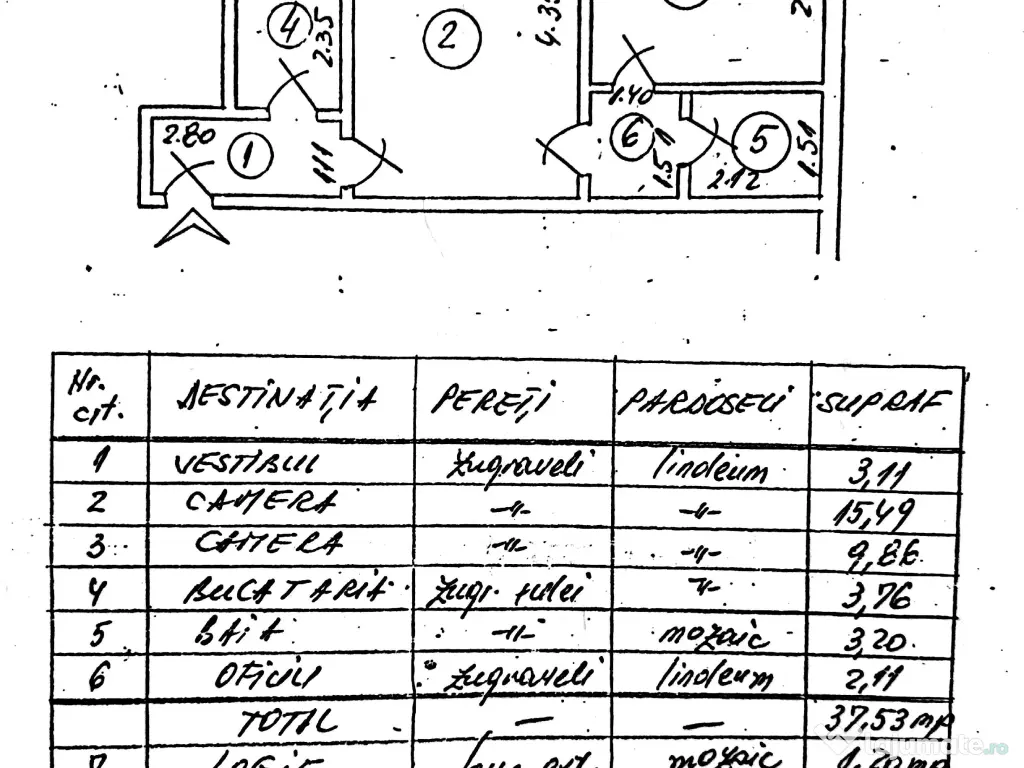 4
2.35
2
4.3
2
1.40
2.80
1
111
6
1.51
5
1.51
2.12
Nr. crt. DESTINAȚIA PEREȚI PARDOSELI SUPRAF
1 VESTIBUL zugraveli linoleum 3,11
2 CAMERA -"- -"- 15,49
3 CAMERA -"- -"- 9,86
4 BUCATARIA zugr. +ulei -"- 3,76
5 BAIA -"- mozaic 3,20
6 OFICIU zugraveli linoleum 2,11
TOTAL — — 37.53 mp
7 mozaic
lajumate.ro